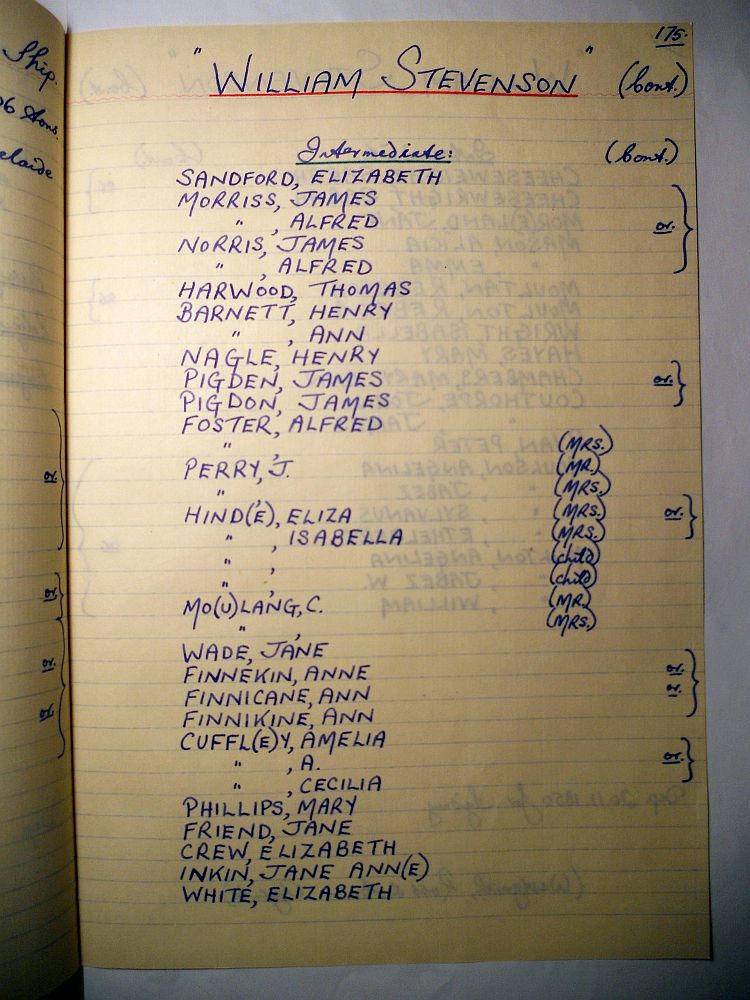 Ship.
175.
" WILLIAM STEVENSON " (Cont.)
Intermediate: (Cont.)
SANDFORD, ELIZABETH
MORRISS, JAMES
" , ALFRED or.
NORRIS, JAMES
" , ALFRED
HARWOOD, THOMAS
BARNETT, HENRY
" , ANN
NAGLE, HENRY
PIGDEN, JAMES or.
PIGDON, JAMES
FOSTER, ALFRED
" , (MRS.)
PERRY, J. (MR.)
" , (MRS.)
HIND(E), ELIZA (MRS.) or.
" , ISABELLA (MRS.)
" , (child)
" , (child)
MO(U)LANG, C. (MR.)
" , (MRS.)
WADE, JANE
FINNEKIN, ANNE or.
FINNICANE, ANN or.
FINNIKINE, ANN
CUFFL(E)Y, AMELIA
" , A. or.
" , CECILIA
PHILLIPS, MARY
FRIEND, JANE
CREW, ELIZABETH
INKIN, JANE ANN(E)
WHITE, ELIZABETH
or.
or.
or.
or.